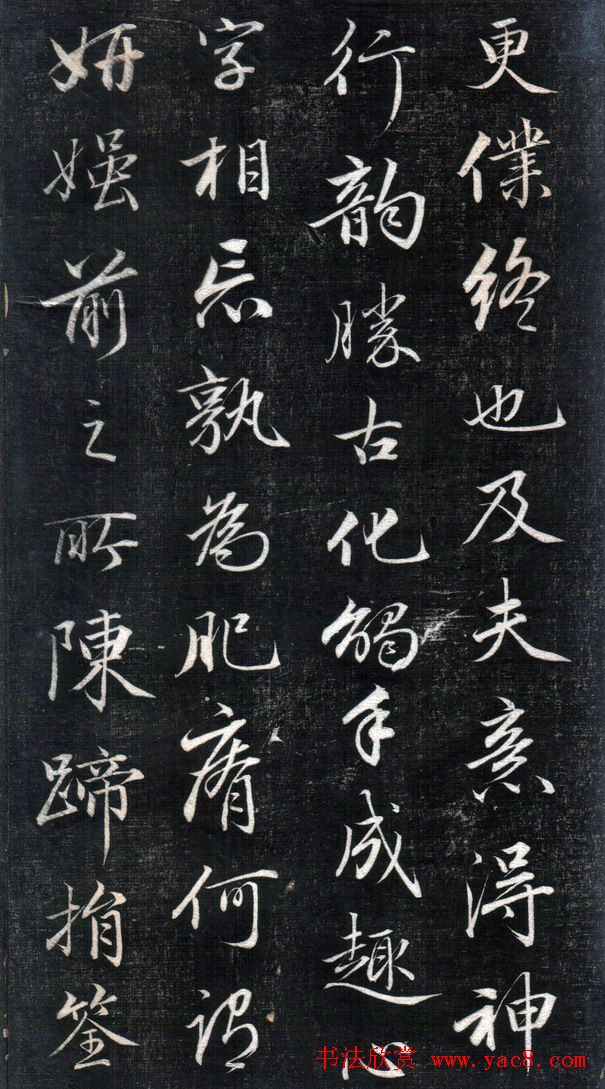 更僕終也及夫意得神
行韻勝古化觸手成趣心
字相忘孰為肥瘠何謂
妍媸前之所陳蹄捐筌
书法欣赏 www.yac8.com